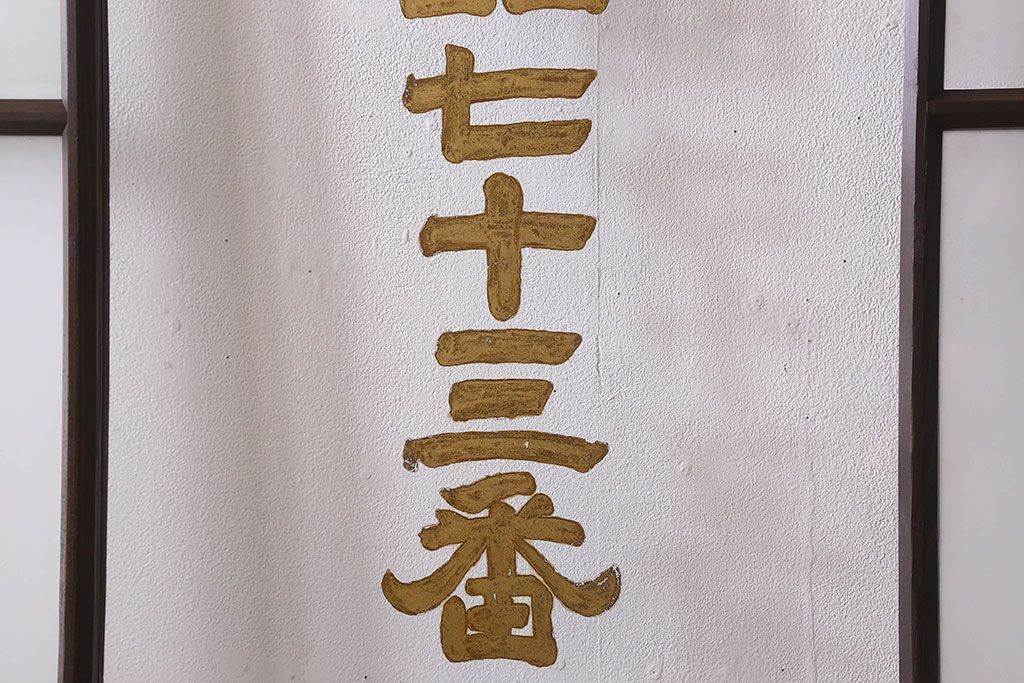 七十三番